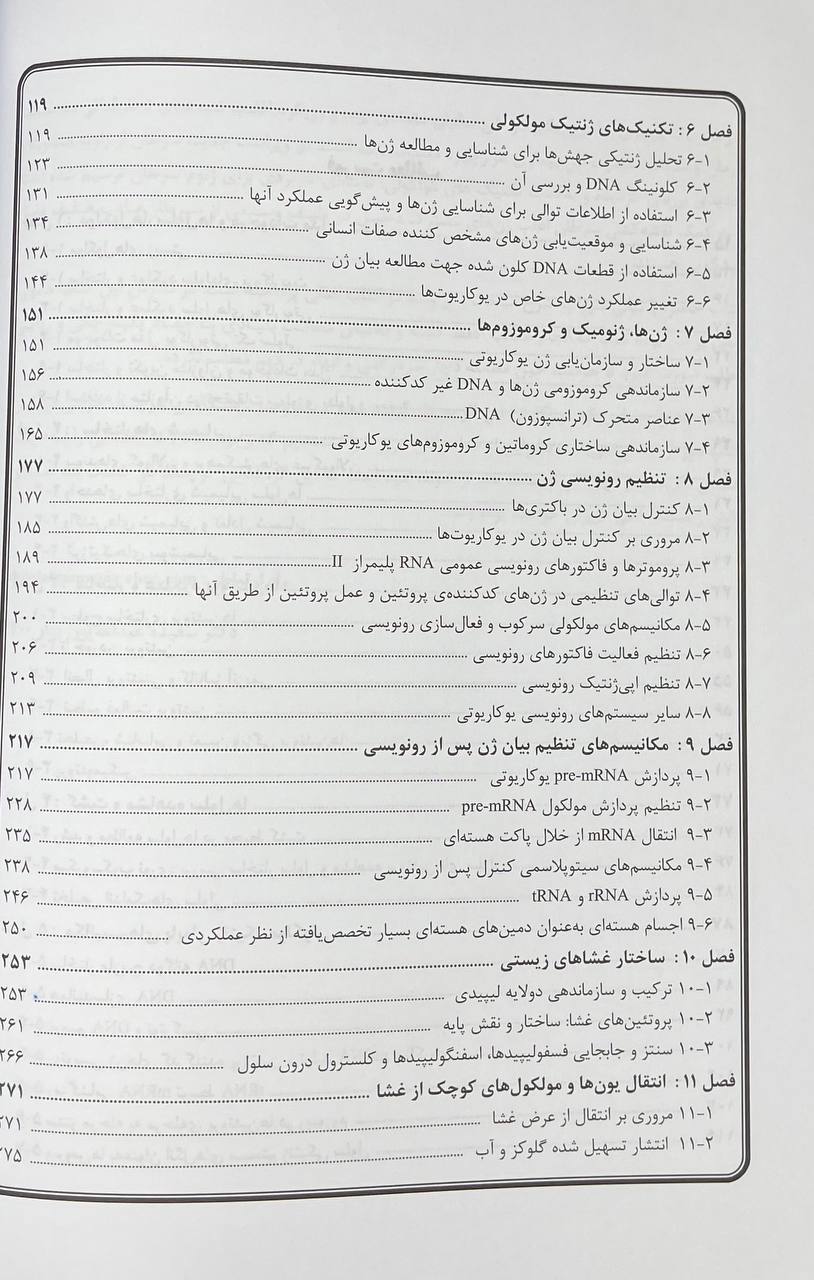 فصل ۶: تکنیک‌های ژنتیک مولکولی ........ ۱۱۹
۶-۱ تحلیل ژنتیکی جهش‌ها برای شناسایی و مطالعه ژن‌ها ........ ۱۱۹
۶-۲ کلونینگ DNA و بررسی آن ........ ۱۲۳
۶-۳ استفاده از اطلاعات توالی برای شناسایی ژن‌ها و پیش‌گویی عملکرد آنها ........ ۱۳۱
۶-۴ شناسایی و موقعیت‌یابی ژن‌های مشخص کننده صفات انسانی ........ ۱۳۴
۶-۵ استفاده از قطعات DNA کلون شده جهت مطالعه بیان ژن ........ ۱۳۸
۶-۶ تغییر عملکرد ژن‌های خاص در یوکاریوت‌ها ........ ۱۴۴
فصل ۷: ژن‌ها، ژنومیک و کروموزوم‌ها ........ ۱۵۱
۷-۱ ساختار و سازمان‌یابی ژن یوکاریوتی ........ ۱۵۱
۷-۲ سازماندهی کروموزومی ژن‌ها و DNA غیر کدکننده ........ ۱۵۶
۷-۳ عناصر متحرک (ترانسپوزون) DNA ........ ۱۵۸
۷-۴ سازماندهی ساختاری کروماتین و کروموزوم‌های یوکاریوتی ........ ۱۶۵
فصل ۸: تنظیم رونویسی ژن ........ ۱۷۷
۸-۱ کنترل بیان ژن در باکتری‌ها ........ ۱۷۷
۸-۲ مروری بر کنترل بیان ژن در یوکاریوت‌ها ........ ۱۸۵
۸-۳ پروموترها و فاکتورهای رونویسی عمومی RNA پلیمراز II ........ ۱۸۹
۸-۴ توالی‌های تنظیمی در ژن‌های کدکننده‌ی پروتئین و عمل پروتئین از طریق آنها ........ ۱۹۴
۸-۵ مکانیسم‌های مولکولی سرکوب و فعال‌سازی رونویسی ........ ۲۰۰
۸-۶ تنظیم فعالیت فاکتورهای رونویسی ........ ۲۰۶
۸-۷ تنظیم اپی‌ژنتیک رونویسی ........ ۲۰۹
۸-۸ سایر سیستم‌های رونویسی یوکاریوتی ........ ۲۱۳
فصل ۹: مکانیسم‌های تنظیم بیان ژن پس از رونویسی ........ ۲۱۷
۹-۱ پردازش pre-mRNA یوکاریوتی ........ ۲۱۷
۹-۲ تنظیم پردازش مولکول pre-mRNA ........ ۲۲۸
۹-۳ انتقال mRNA از خلال پاکت هسته‌ای ........ ۲۳۵
۹-۴ مکانیسم‌های سیتوپلاسمی کنترل پس از رونویسی ........ ۲۳۸
۹-۵ پردازش rRNA و tRNA ........ ۲۴۶
۹-۶ اجسام هسته‌ای به‌عنوان دمین‌های هسته‌ای بسیار تخصص‌یافته از نظر عملکردی ........ ۲۵۰
فصل ۱۰: ساختار غشاهای زیستی ........ ۲۵۳
۱۰-۱ ترکیب و سازماندهی دولایه لیپیدی ........ ۲۵۳
۱۰-۲ پروتئین‌های غشا: ساختار و نقش پایه ........ ۲۶۱
۱۰-۳ سنتز و جابجایی فسفولیپیدها، اسفنگولیپیدها و کلسترول درون سلول ........ ۲۶۶
فصل ۱۱: انتقال یون‌ها و مولکول‌های کوچک از غشا ........ ۲۷۱
۱۱-۱ مروری بر انتقال از عرض غشا ........ ۲۷۱
۱۱-۲ انتشار تسهیل شده گلوکز و آب ........ ۲۷۵